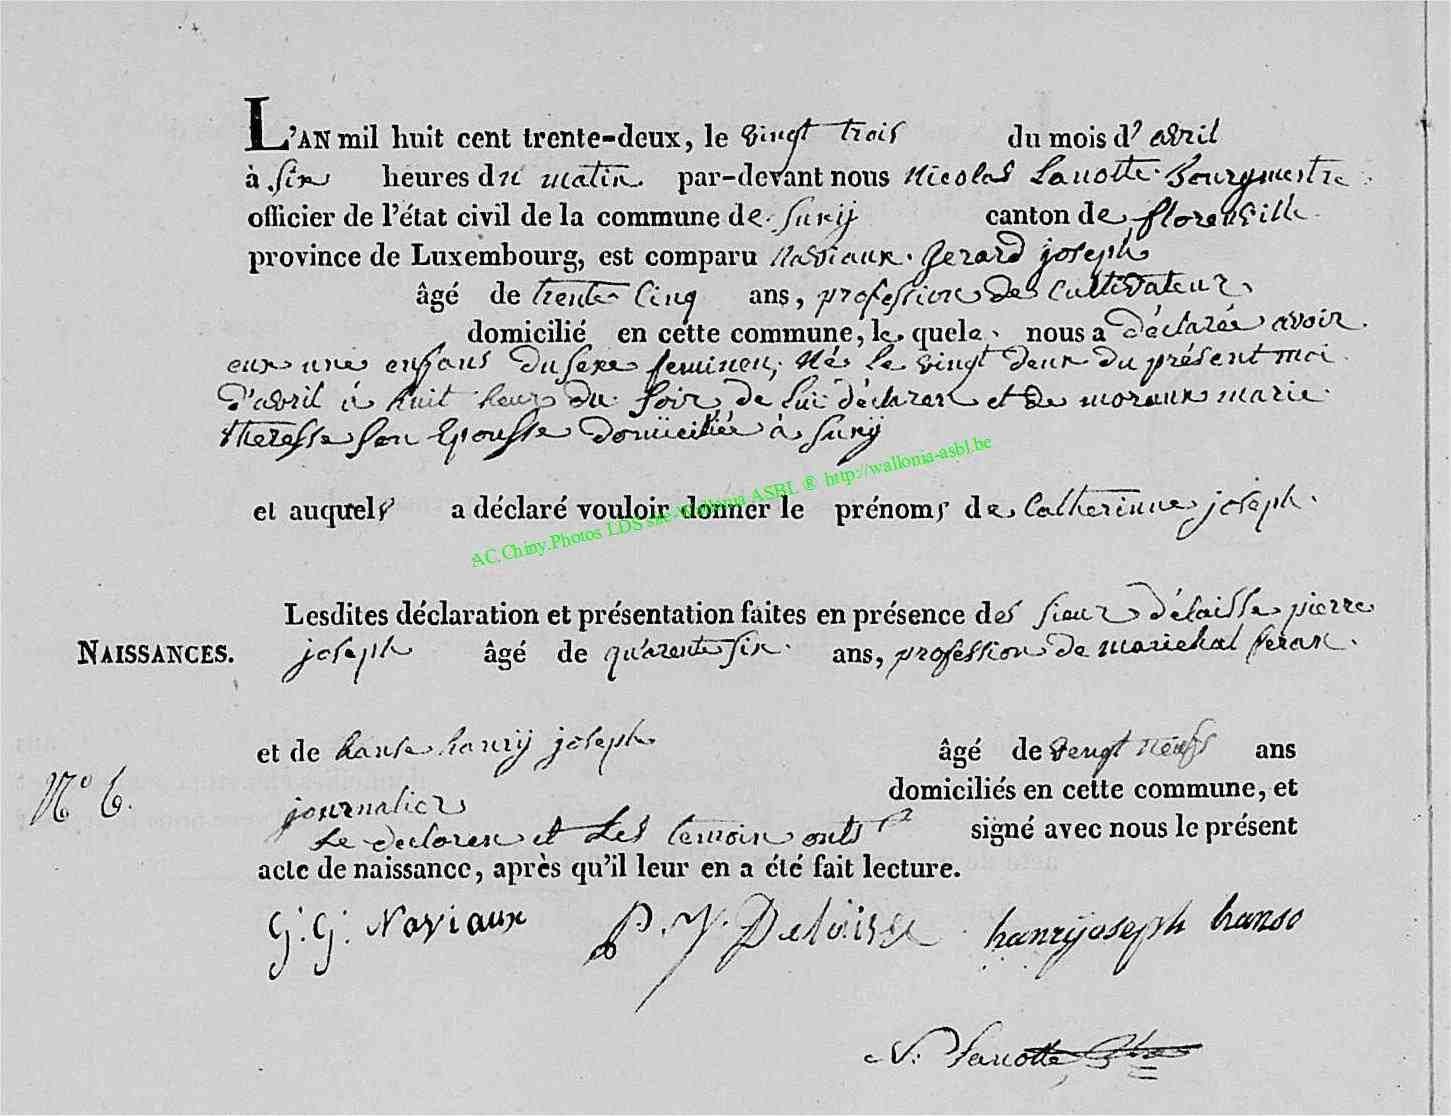 L'AN mil huit cent trente-deux, le vingt trois du mois d' avril
à six heures du matin par-devant nous Nicolas Lanotte Bourgmestre
officier de l'état civil de la commune de Suxÿ canton de florenville
province de Luxembourg, est comparu Naviaux Gerard joseph
âgé de trente Cinq ans, profession de Cultivateur
domicilié en cette commune, le quele nous a déclarée avoir
eux une enfans du sexe feminen, Né le vingt deux du présent moi
D'avril à huit heur du Soir, de Lui déclaran et de moraux marie
theresse son Epousse domiciliée à Suxÿ
et auquels a déclaré vouloir donner le prénoms de Catherinne joseph
AC.Chiny.Photos LDS site-Wallonia ASBL ® http://wallonia-asbl.be
Lesdites déclaration et présentation faites en présence des sieur Délaisse pierre
NAISSANCES. joseph âgé de quarente six ans, profession de mariehal feran
et de hanse hanrÿ joseph âgé de vengt neufs ans
No 6. journalier domiciliés en cette commune, et
Le declaren et Les temoin onts signé avec nous le présent
acte de naissance, après qu'il leur en a été fait lecture.
G. G. Naviaux P. J. Delaisse hanrÿ joseph hanso
N. Lanotte